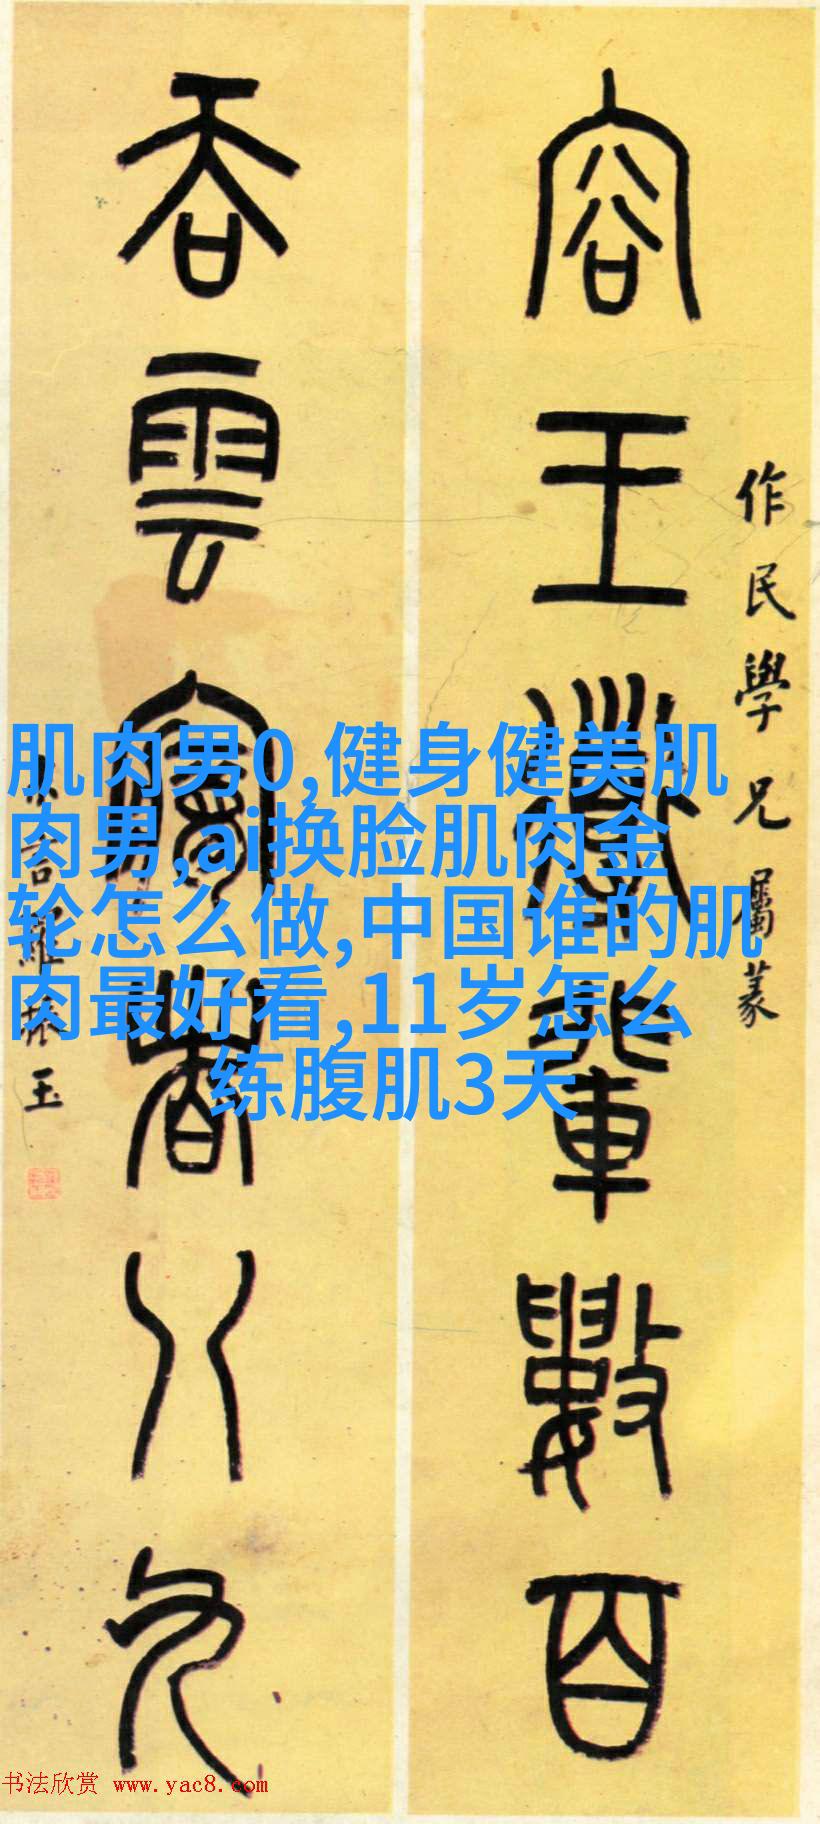 作民學兄屬篆
容王輩數百
吞雲夢者八九
叔言羅振玉
肌肉男0,健身健美肌
肉男,ai换脸肌肉金
轮怎么做,中国谁的肌
肉最好看,11岁怎么
练腹肌3天
书法欣赏 www.yac8.com